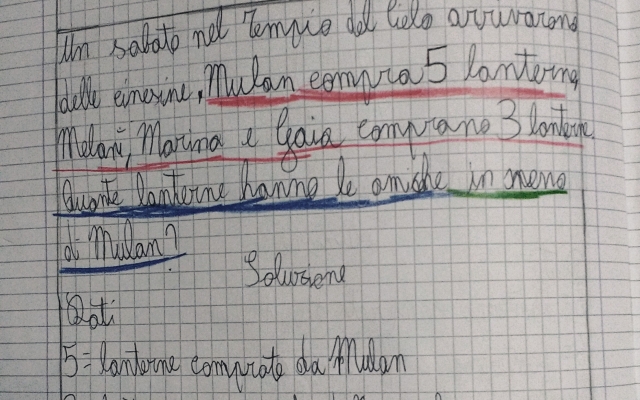 Un sabato nel Tempio del Cielo arrivarono
delle cinesine, Mulan compra 5 lanterne,
Melani, Marina e Gaia comprano 3 lanterne.
Quante lanterne hanno le amiche in meno
di Mulan?
Soluzione
Dati
5 = lanterne comprate da Mulan